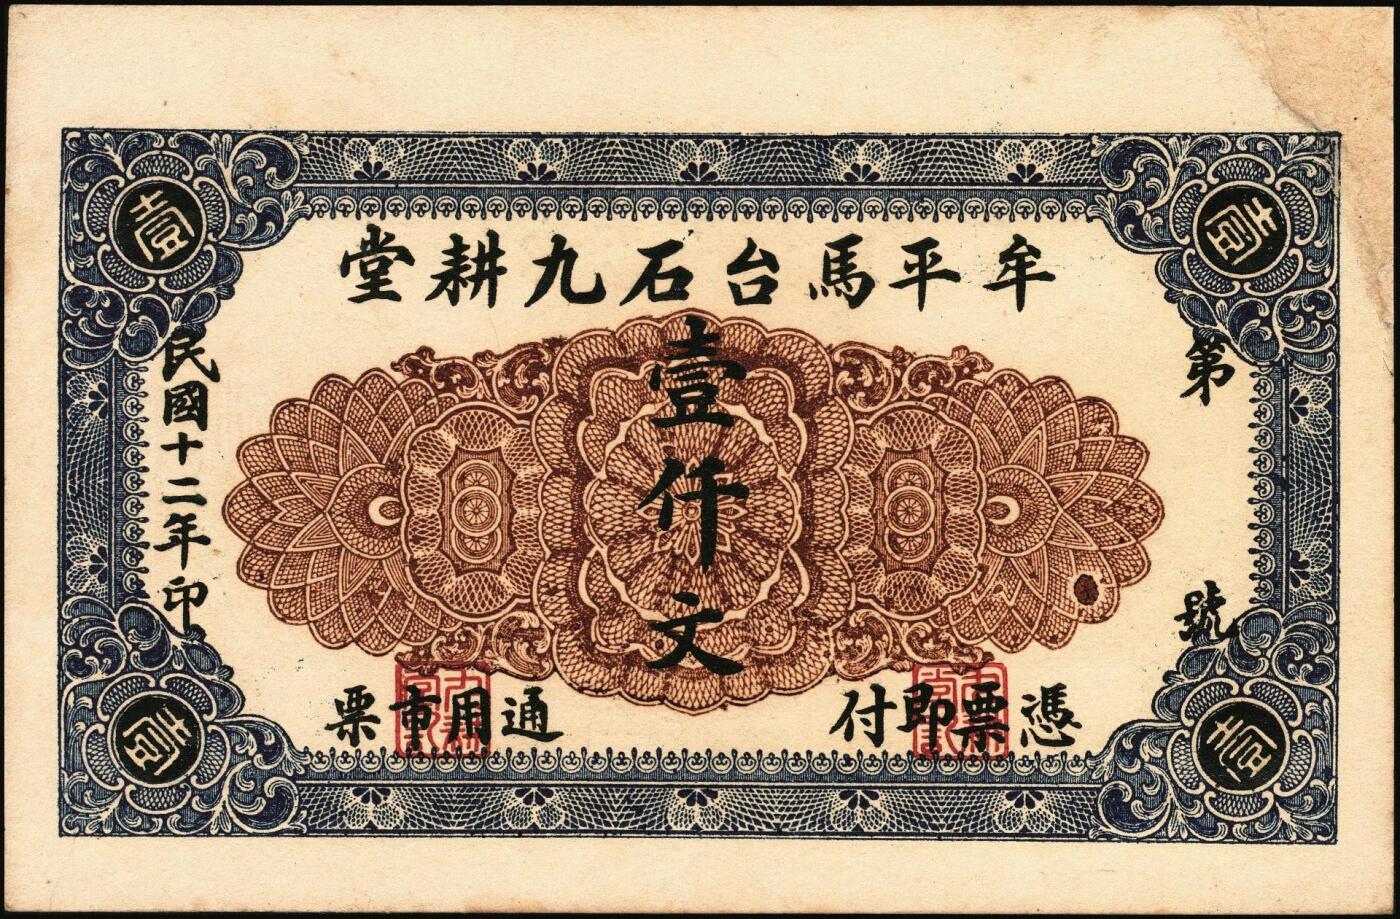 牟平馬台石九耕堂
壹仟文
第 號
民國十二年印
憑票即付
通用重票
壹
壹
壹
壹